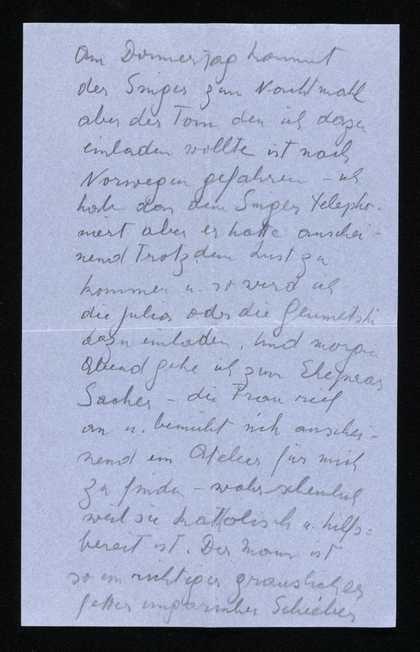 Am Donnerstag kommt
der Singer zum Nachtmahl
aber der Tom den ich dazu
einladen wollte ist nach
Norwegen gefahren – ich
habe das dem Singer telepho-
niert aber er hatte anschei-
nend trotzdem Lust zu
kommen u. so werd ich
die Julia oder die
dazu einladen. Und morgen
Abend gehe ich zum Ehepaar
Sacher – die Frau rief
an u. bemüht sich anschei-
nend ein Atelier für mich
zu finden – wahrscheinlich
weil sie katholisch u. hilfs=
bereit ist. Der Mann ist
so ein richtiger grauslicher
fetter ungarischer Schieber